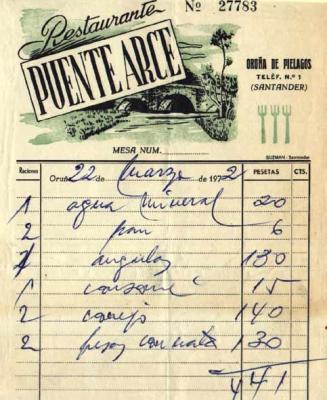 Restaurante Nº 27783
PUENTE ARCE
ORUÑA DE PIELAGOS
TELÉF. N.º 1
(SANTANDER)
MESA NUM.
GUZMAN - Santander
Raciones Oruña 22 de Marzo de 1972 PESETAS CTS.
1 agua mineral 20
2 pan 6
1 angulas 130
1 consomé 15
2 conejo 140
2 fresas con nata 130
441